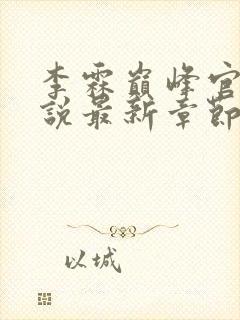 李霖巔峰官
說最新章節
以城